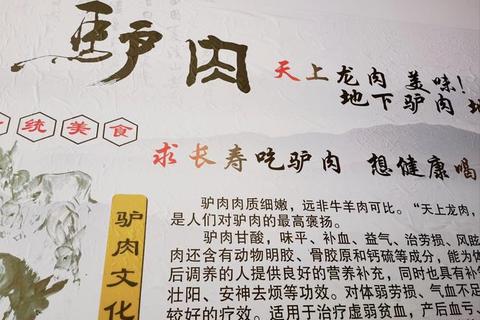 驴肉
天上龙肉 美味！
地下驴肉
统美食
求长寿吃驴肉 想健康喝
驴肉文化
驴肉肉质细嫩，远非牛羊肉可比。“天上龙肉，
是人们对驴肉的最高褒扬。
驴肉甘酸，味平、补血、益气、治劳损、风眩
肉还含有动物明胶、骨胶原和钙硫等成分，能为体
后调养的人提供良好的营养补充，同时也具有补气
壮阳、安神去烦等功效。对体弱劳损、气血不足
较好的疗效。适用于治疗虚弱贫血，产后血亏、